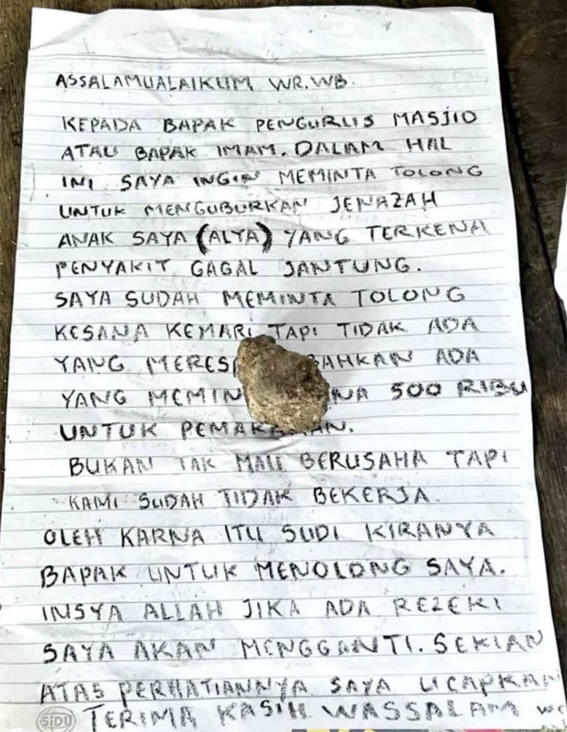 ASSALAMUALAIKUM WR.WB.
KEPADA BAPAK PENGURUS MASJID
ATAU BAPAK IMAM. DALAM HAL
INI SAYA INGIN MEMINTA TOLONG
UNTUK MENGUBURKAN JENAZAH
ANAK SAYA (ALYA) YANG TERKENA
PENYAKIT GAGAL JANTUNG.
SAYA SUDAH MEMINTA TOLONG
KESANA KEMARI TAPI TIDAK ADA
YANG ADA
YANG 500 RIBU
UNTUK
BUKAN TAK MAU BERUSAHA TAPI
KAMI SUDAH TIDAK BEKERJA.
OLEH KARNA ITU SUDI KIRANYA
BAPAK UNTUK MENOLONG SAYA.
INSYA ALLAH JIKA ADA REZEKI
SAYA AKAN MENGGANTI. SEKIAN
ATAS PERHATIANNYA SAYA UCAPKAN
TERIMA KASIH WASSALAM
SIDU